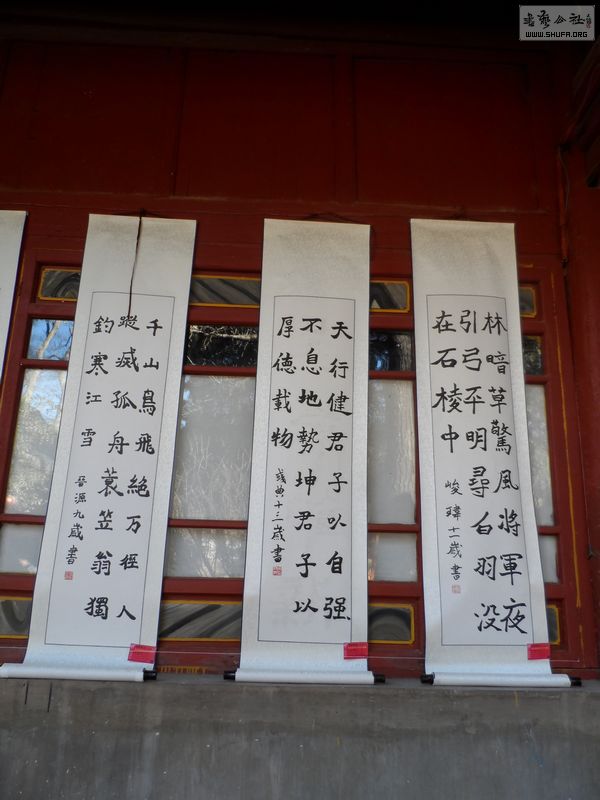 書藝公社
WWW.SHUFA.ORG
林暗草驚風將軍夜
引弓平明尋白羽没
在石棱中
峻瑋十一歲書
天行健君子以自强
不息地勢坤君子以
厚德載物
十三歲書
千山鳥飛絶万徑人
蹤滅孤舟蓑笠翁獨
釣寒江雪
晉源九歲書